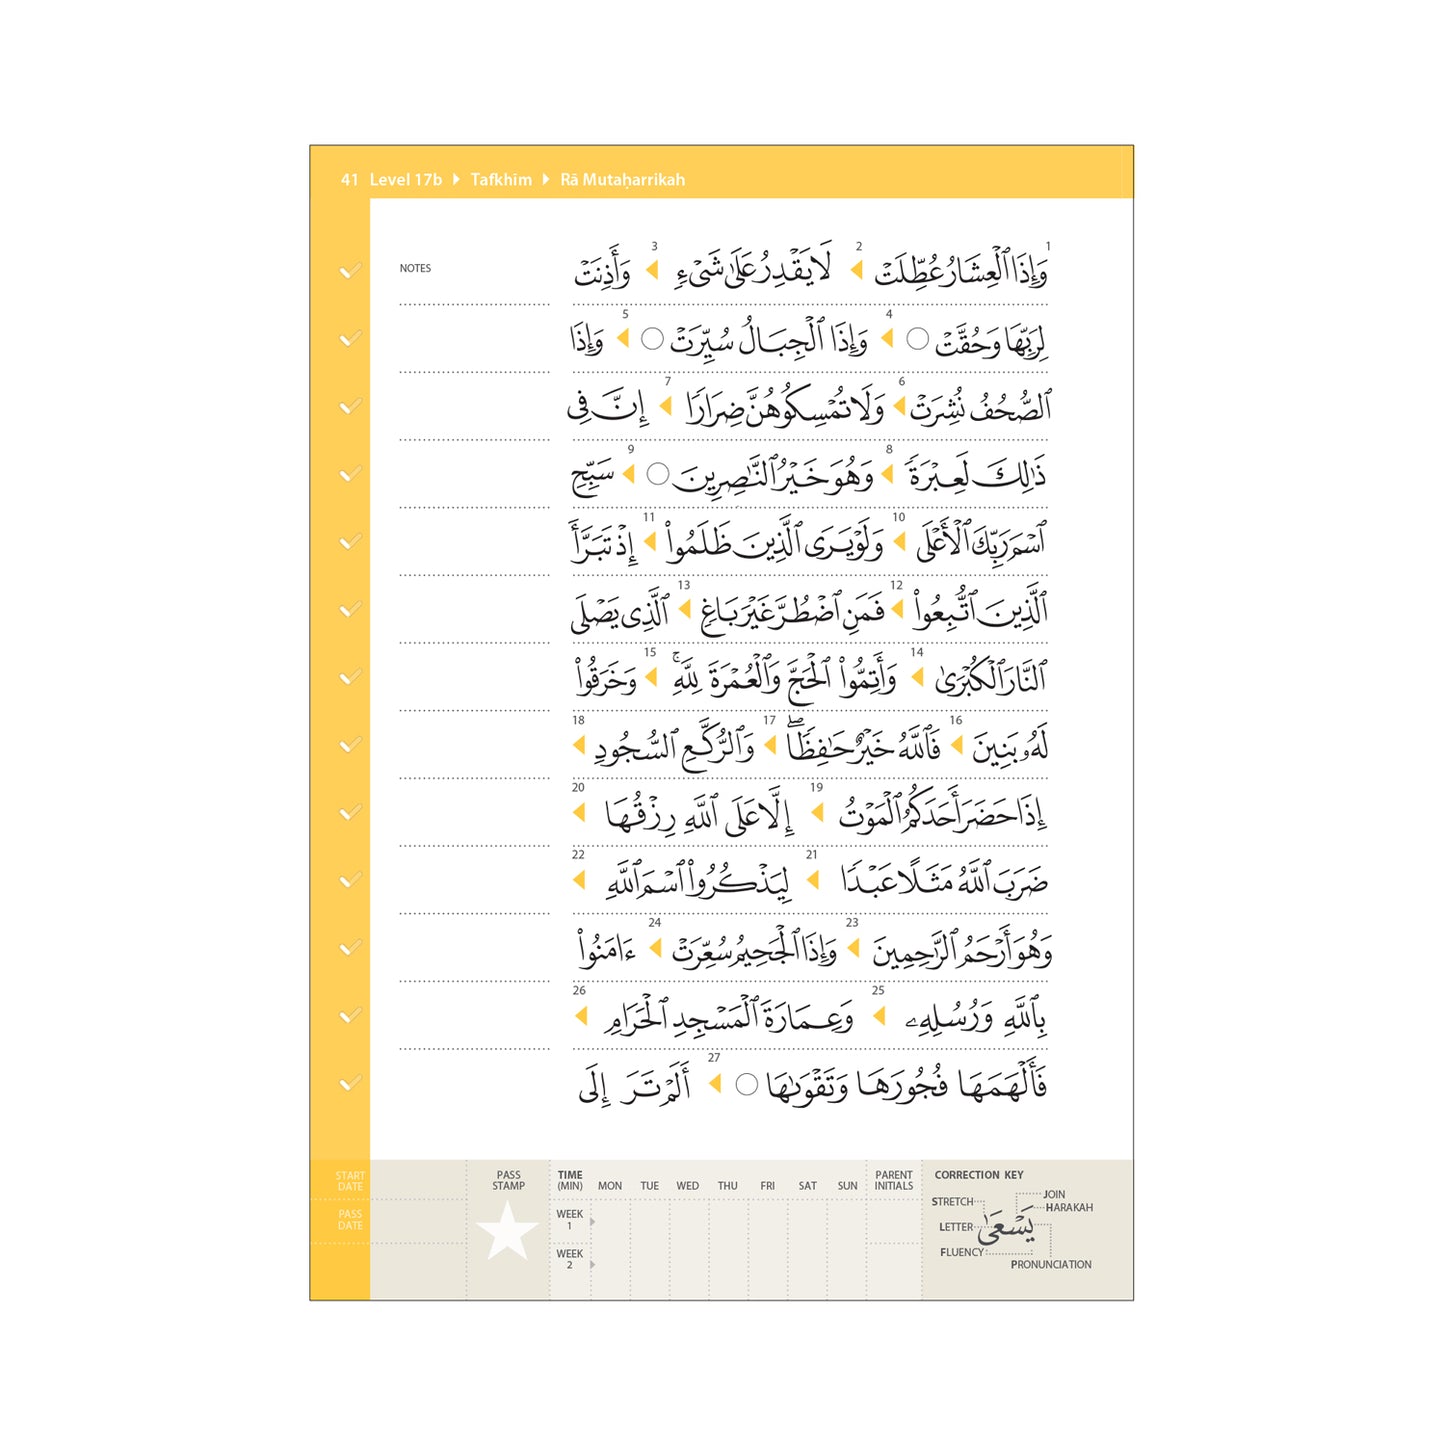 41 Level 17b ▶ Tafkhīm ▶ Rā Mutaḥarrikah
NOTES
1 وَإِذَا ٱلْعِشَارُ عُطِّلَتْ 2 لَا يَقْدِرُ عَلَىٰ شَىْءٍ 3 وَأَذِنَتْ
لِرَبِّهَا وَحُقَّتْ 4 وَإِذَا ٱلْجِبَالُ سُيِّرَتْ 5 وَإِذَا
ٱلصُّحُفُ نُشِرَتْ 6 وَلَا تُمْسِكُوهُنَّ ضِرَارًا 7 إِنَّ فِى
ذَٰلِكَ لَعِبْرَةً 8 وَهُوَ خَيْرُ ٱلنَّـٰصِرِينَ 9 سَبِّحِ
ٱسْمَ رَبِّكَ ٱلْأَعْلَى 10 وَلَوْ يَرَى ٱلَّذِينَ ظَلَمُوا۟ 11 إِذْ تَبَرَّأَ
ٱلَّذِينَ ٱتُّبِعُوا۟ 12 فَمَنِ ٱضْطُرَّ غَيْرَ بَاغٍ 13 ٱلَّذِى يَصْلَى
ٱلنَّارَ ٱلْكُبْرَىٰ 14 وَأَتِمُّوا۟ ٱلْحَجَّ وَٱلْعُمْرَةَ لِلَّهِ ۚ 15 وَخَرَقُوا۟
لَهُۥ بَنِينَ 16 فَٱللَّهُ خَيْرٌ حَـٰفِظًا ۖ 17 وَٱلرُّكَّعِ ٱلسُّجُودِ 18
إِذَا حَضَرَ أَحَدَكُمُ ٱلْمَوْتُ 19 إِلَّا عَلَى ٱللَّهِ رِزْقُهَا 20
ضَرَبَ ٱللَّهُ مَثَلًا عَبْدًا 21 لِيَذْكُرُوا۟ ٱسْمَ ٱللَّهِ 22
وَهُوَ أَرْحَمُ ٱلرَّٰحِمِينَ 23 وَإِذَا ٱلْجَحِيمُ سُعِّرَتْ 24 ءَامَنُوا۟
بِٱللَّهِ وَرُسُلِهِۦ 25 وَعِمَارَةَ ٱلْمَسْجِدِ ٱلْحَرَامِ 26
فَأَلْهَمَهَا فُجُورَهَا وَتَقْوَىٰهَا 27 أَلَمْ تَرَ إِلَى
START DATE
PASS DATE
PASS STAMP
TIME (MIN) MON TUE WED THU FRI SAT SUN
WEEK 1
WEEK 2
PARENT INITIALS
CORRECTION KEY
STRETCH
LETTER
FLUENCY
يَسْعَىٰ
JOIN
HARAKAH
PRONUNCIATION